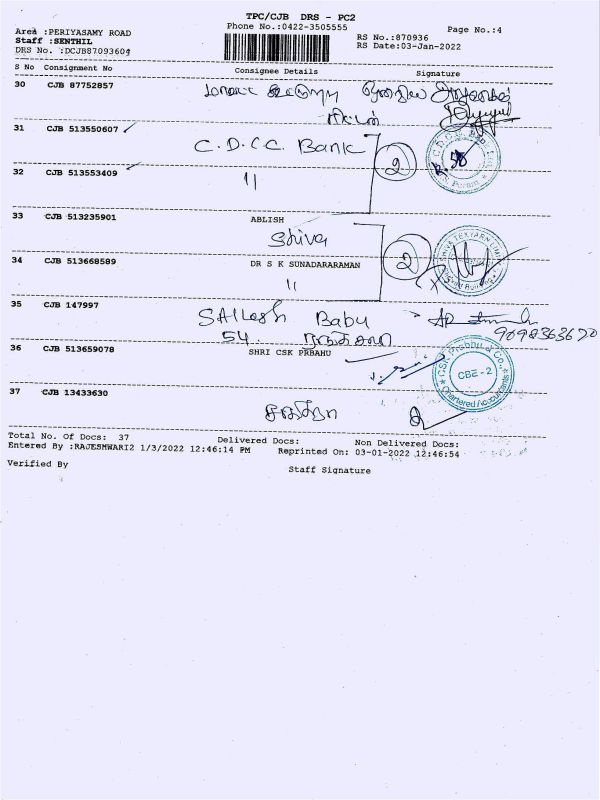 TPC/CJB DRS - PC2
Phone No.:0422-3505555
Page No.:4
Area :PERIYASAMY ROAD
RS No.:870936
Staff :SENTHIL
RS Date:03-Jan-2022
DRS No. :DCJB87093604
S No Consignment No Consignee Details Signature
30 CJB 87752857
31 CJB 513550607
C.D.C.C. Bank 2
32 CJB 513553409
11
33 CJB 513235901 ABLISH
Shiva 2
34 CJB 513668589 DR S K SUNADARARAMAN
11
35 CJB 147997
SAILesh Babu
54.
36 CJB 513659078 SHRI CSK PRBAHU
CSK Prabhu & Co.,
CBE - 2
Chartered Accountants
37 CJB 13433630
Total No. Of Docs: 37 Delivered Docs: Non Delivered Docs:
Entered By :RAJESMWARI2 1/3/2022 12:46:14 PM Reprinted On: 03-01-2022 12:46:54
Verified By
Staff Signature